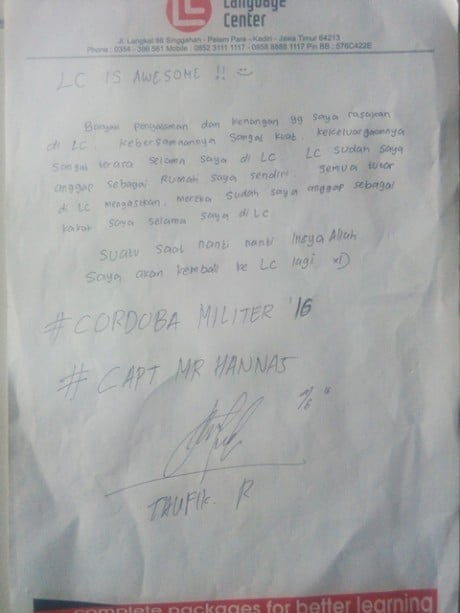 Language
Center
Jl. Langkat 88 Singgahan - Pelem Pare - Kediri - Jawa Timur 64213
Phone : 0354 - 396 561 Mobile : 0852 3111 1117 - 0858 8888 1117 Pin BB : 576C422E
LC IS AWESOME !!
Banyak pengalaman dan kenangan yg saya rasakan
di LC. Kebersamaannya sangat kuat, kekeluargaannya
sangat terasa selama saya di LC. LC sudah saya
anggap sebagai Rumah saya sendiri. Semua tutor
di LC mengasikan, mereka sudah saya anggap sebagai
kakak saya selama saya di LC.
Suatu saat nanti nanti Insya Allah
Saya akan kembali ke LC lagi xD
# CORDOBA MILITER '16
# CAPT MR HANNAS
TAUFIK. R
complete packages for better learning